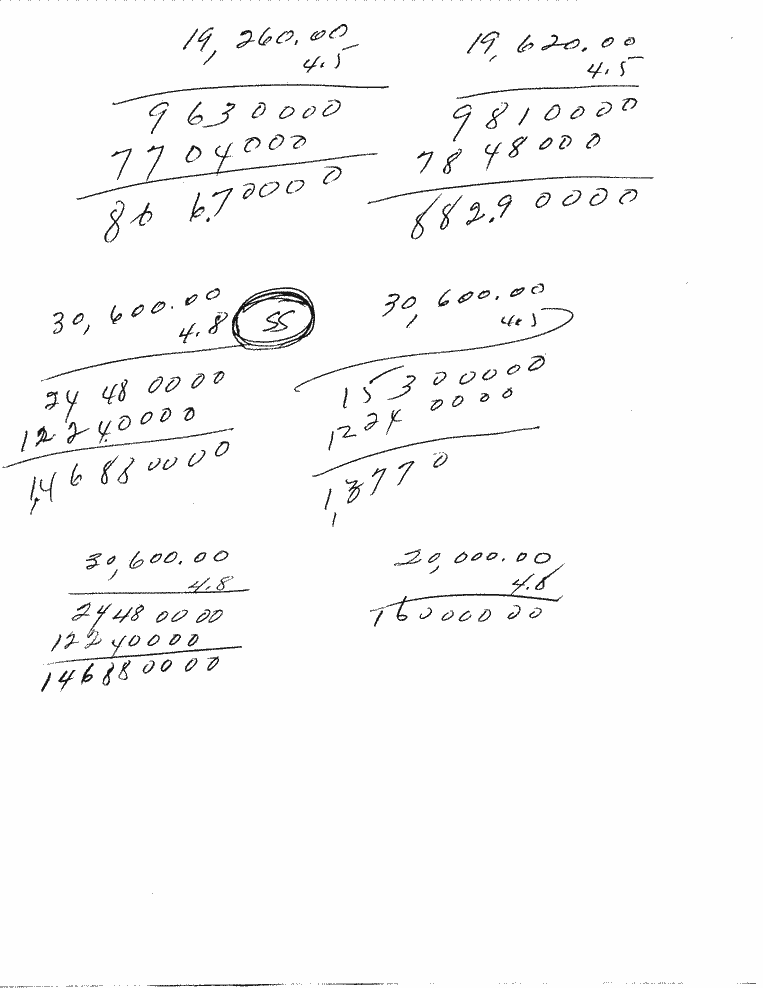 19,260.00
4.5
9630000
7704000
866.70000
19,620.00
4.5
9810000
7848000
882.90000
30,600.00
4.8
SS
24480000
12240000
1,46880000
30,600.00
4.5
15300000
12240000
1,3770
30,600.00
4.8
24480000
12240000
146880000
20,000.00
4.8
16000000